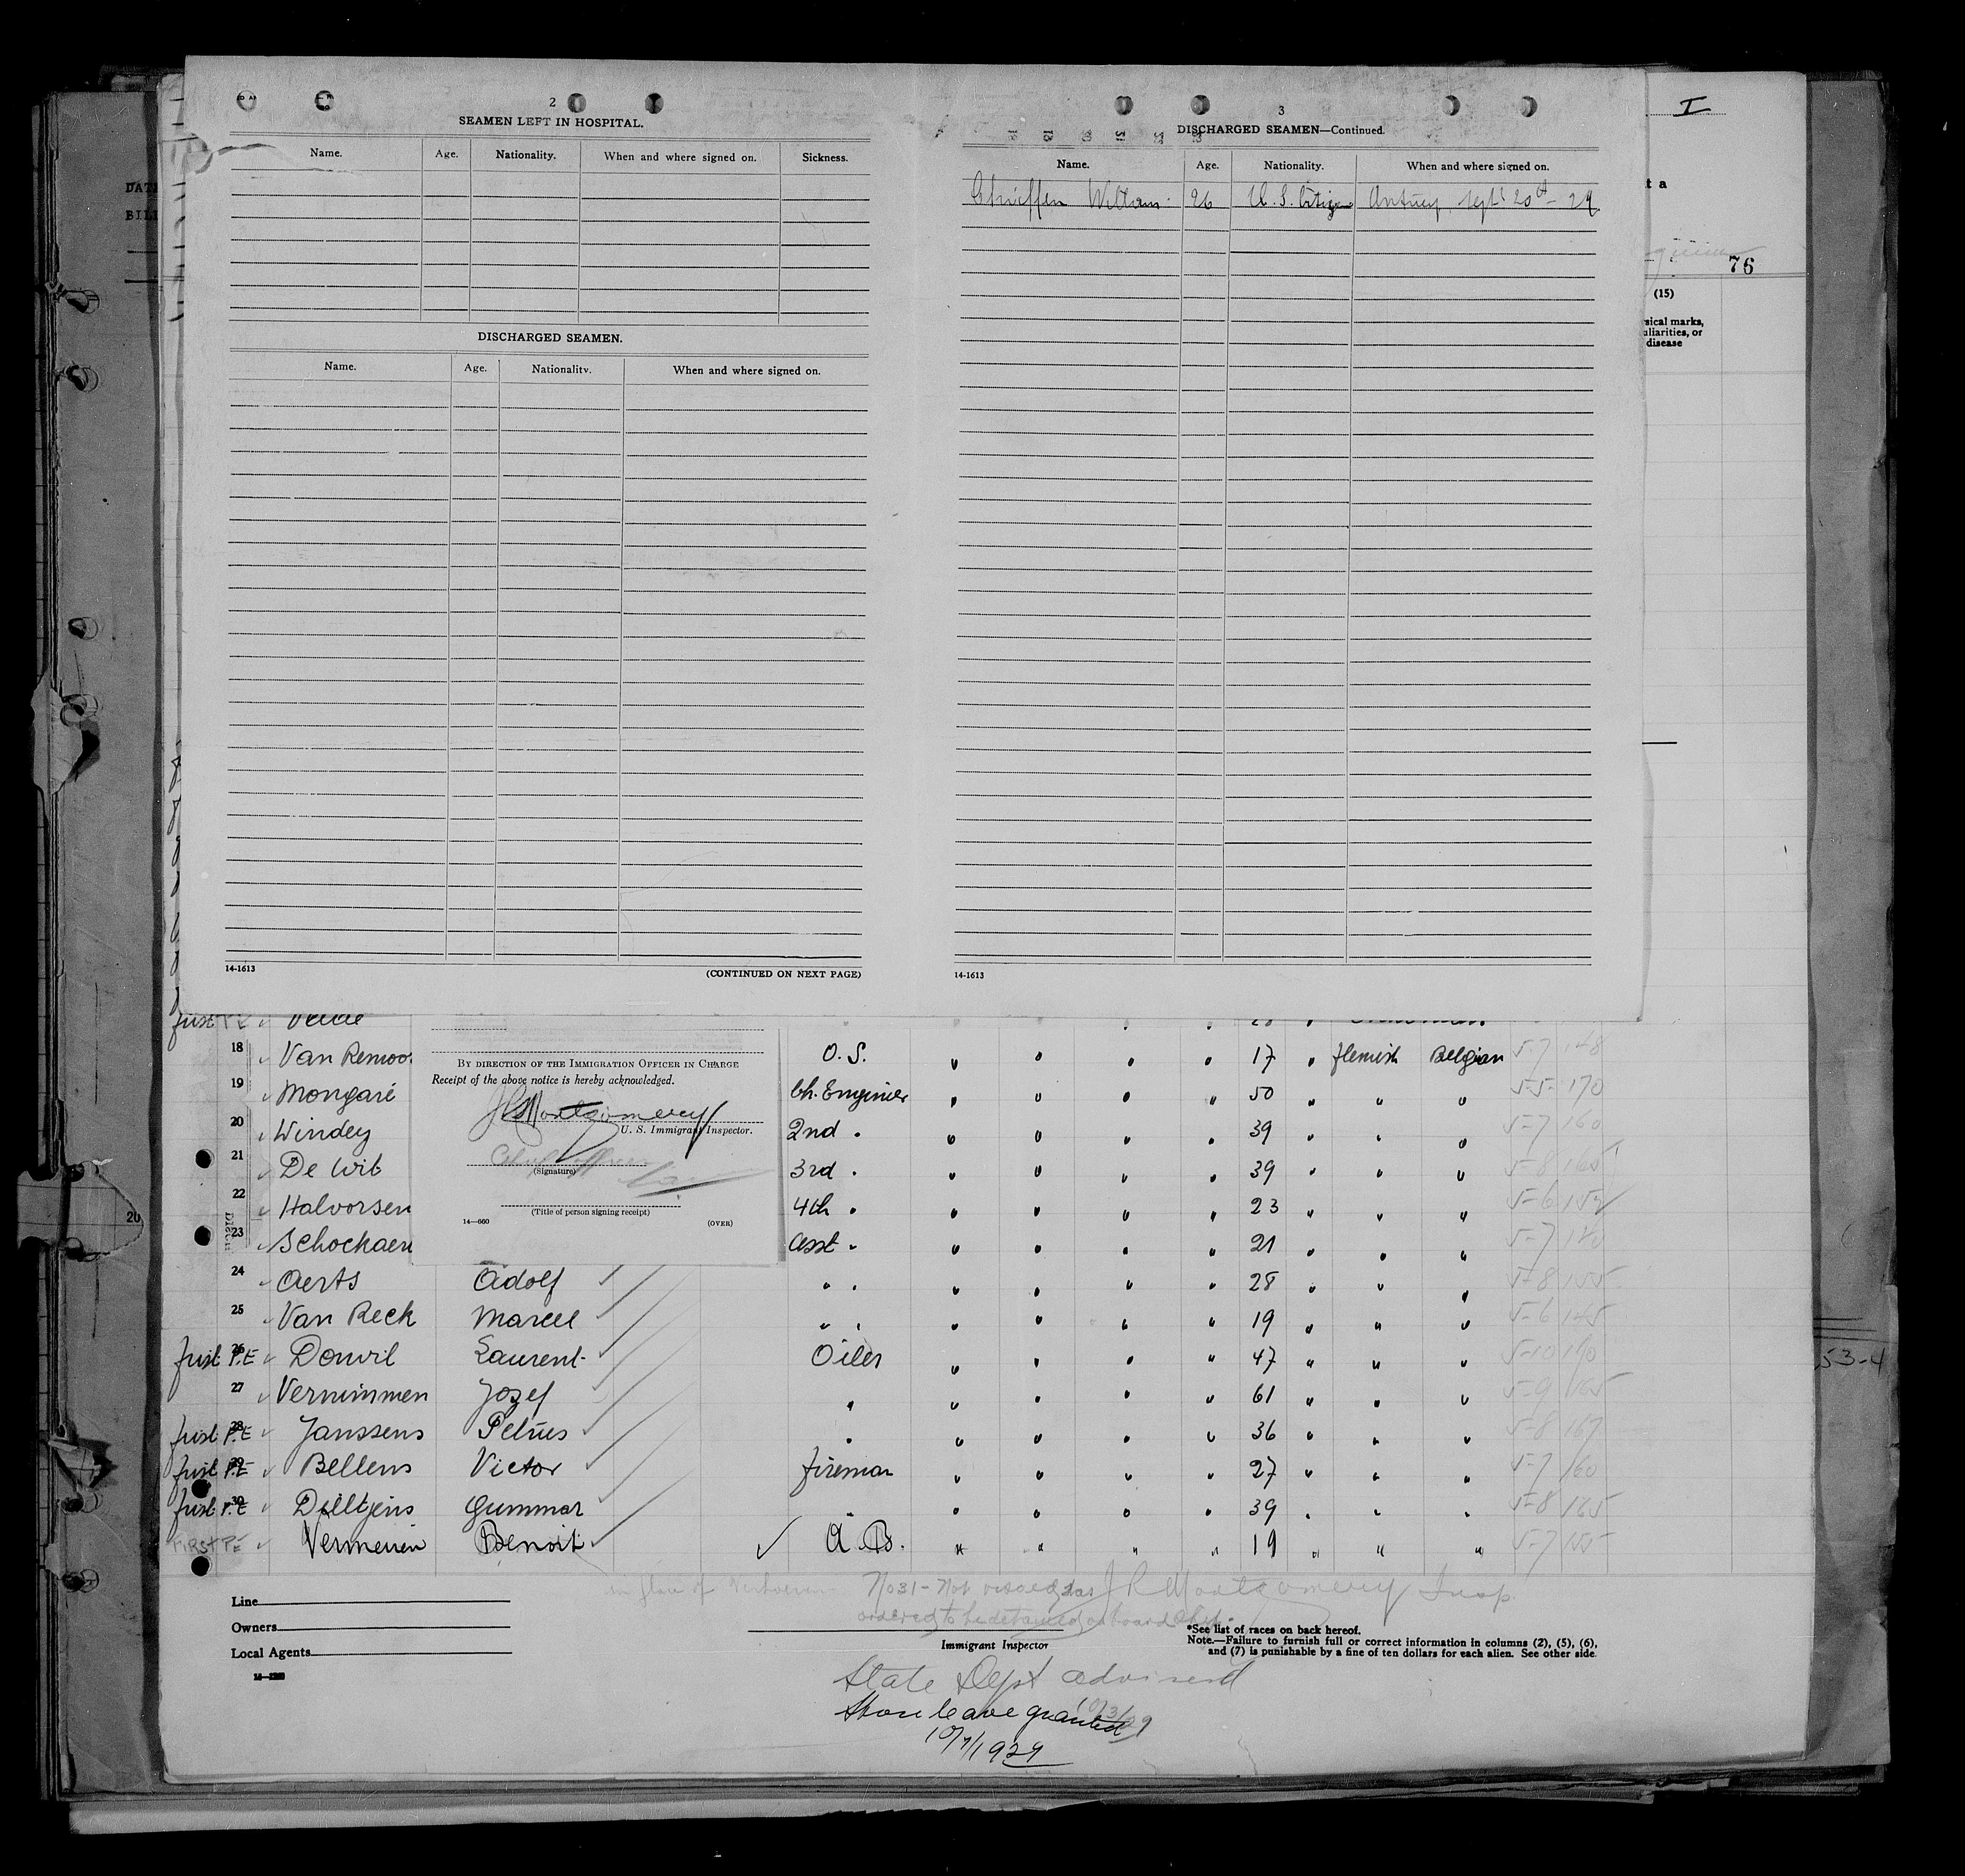 2
SEAMEN LEFT IN HOSPITAL.
Name. Age. Nationality. When and where signed on. Sickness.
DISCHARGED SEAMEN.
Name. Age. Nationality. When and where signed on.
14-1613 (CONTINUED ON NEXT PAGE)
3
DISCHARGED SEAMEN—Continued.
Name. Age. Nationality. When and where signed on.
William 26 U.S. Citizen Sept 20th - 29
14-1613
I
76
(15)
sical marks,
uliarities, or
disease
DATE
BILL
first
18 Van Remoo O.S. " " " " 17 " flemish Belgian 5-7 148
19 Mongaré Ch. Enginier " " " " 50 " " " 5-5 170
20 Windey 2nd " " " " " 39 " " " 5-7 160
21 De Wit 3rd " " " " " 39 " " " 5-8 165
22 Halvorsen 4th " " " " " 23 " " " 5-6 152
23 Schockaen Asst " " " " " 21 " " " 5-7
24 Aerts Adolf " " " " " " 28 " " " 5-8 155
25 Van Reck Marcel " " " " " " 19 " " " 5-6 145
first P.E 26 Donvil Laurent Oiler " " " " 47 " " " 5-10 190
27 Vernimmen Jozef " " " " " 61 " " " 5-9 165
first P.E 28 Janssens Petrus " " " " " 36 " " " 5-8 167
first P.E 29 Bellens Victor fireman " " " " 27 " " " 5-7 160
first P.E 30 Gummar " " " " " 39 " " " 5-8 165
FIRST P.E Vermeiren Benoit A.B. " " " " 19 " " " 5-7 155
BY DIRECTION OF THE IMMIGRATION OFFICER IN CHARGE
Receipt of the above notice is hereby acknowledged.
J R Montgomery
U. S. Immigrant Inspector.
(Signature)
(Title of person signing receipt)
14—660 (OVER)
20
53-4
in place of
No 31 - Not visaed, J R Montgomery Insp.
ordered to be detained on board ship.
Line
Owners
Local Agents
Immigrant Inspector
*See list of races on back hereof.
Note.—Failure to furnish full or correct information in columns (2), (5), (6),
and (7) is punishable by a fine of ten dollars for each alien. See other side.
State Dept advised
10/3/29
Shore leave granted
10/7/1929